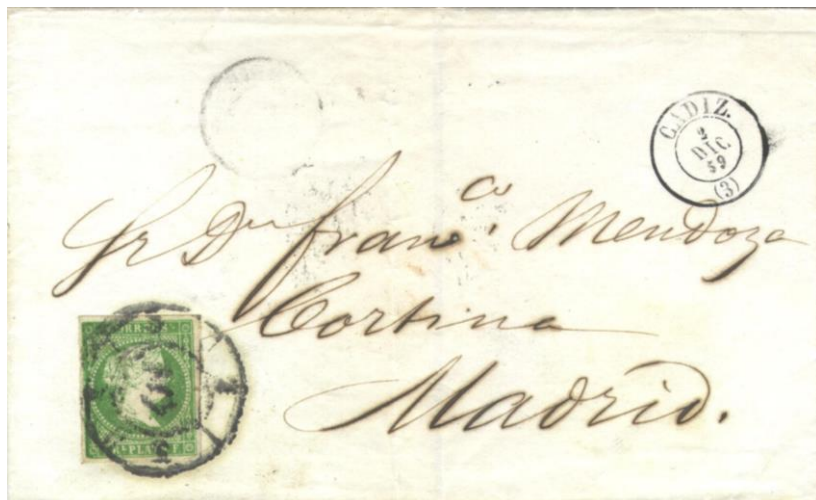 CADIZ.
2
DIC.
59
(3)
Sr Dn Franco. Mendoza
Cortina
Madrid.
CORREOS